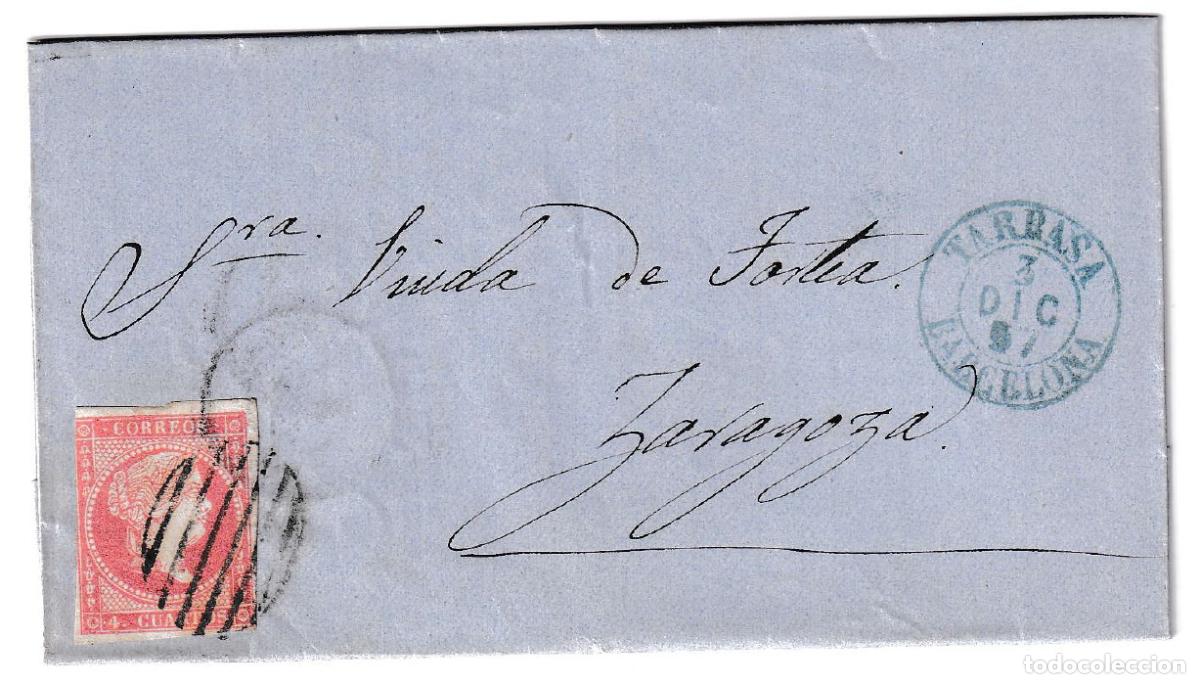 Sra. Viuda de Fortea.
Zaragoza.
TARRASA
3
DIC
57
BARCELONA
CORREOS
4 CUARTOS
todocoleccion